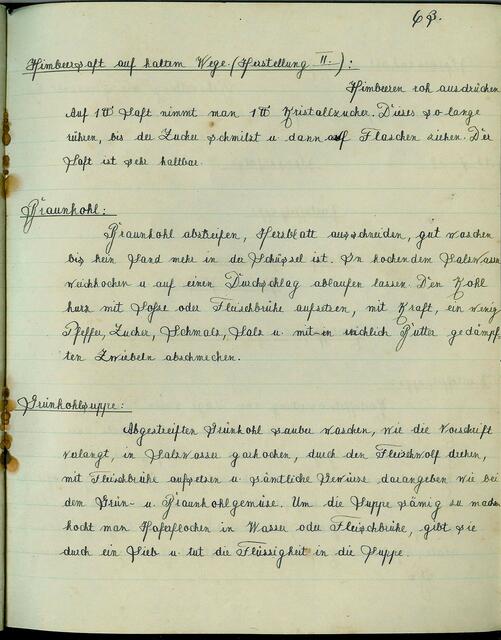 63.
Himbeersaft auf kaltem Wege. (Herstellung II.):
Himbeeren roh ausdrücken
Auf 1 ℔ Saft nimmt man 1 ℔ Kristallzucker. Dieses so lange
rühren, bis der Zucker schmilzt u. dann auf Flaschen ziehen. Der
Saft ist sehr haltbar.
Braunkohl:
Braunkohl abstreifen, Herzblatt ausschneiden, gut waschen
bis kein Sand mehr in der Schüssel ist. In kochendem Salzwasser
weichkochen u. auf einen Durchschlag ablaufen lassen. Den Kohl
kurz mit Soße oder Fleischbrühe aufsetzen, mit Kraft, ein wenig
Pfeffer, Zucker, Schmalz, Salz u. mit in reichlich Butter gedämpf-
ten Zwiebeln abschmecken.
Grünkohlsuppe:
Abgestreiften Grünkohl sauber waschen, wie die Vorschrift
verlangt, in Salzwasser garkochen, durch den Fleischwolf drehen,
mit Fleischbrühe aufsetzen u. sämtliche Gewürze darangeben wie bei
dem Grün- u. Braunkohlgemüse. Um die Suppe sämig zu machen
kocht man Haferflocken in Wasser oder Fleischbrühe, gibt sie
durch ein Sieb u. tut die Flüssigkeit in die Suppe.